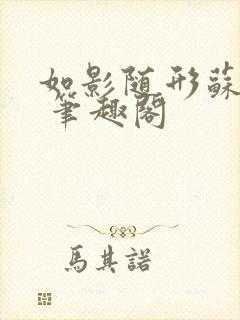 如影随形蘇
筆趣阁
馬其諾